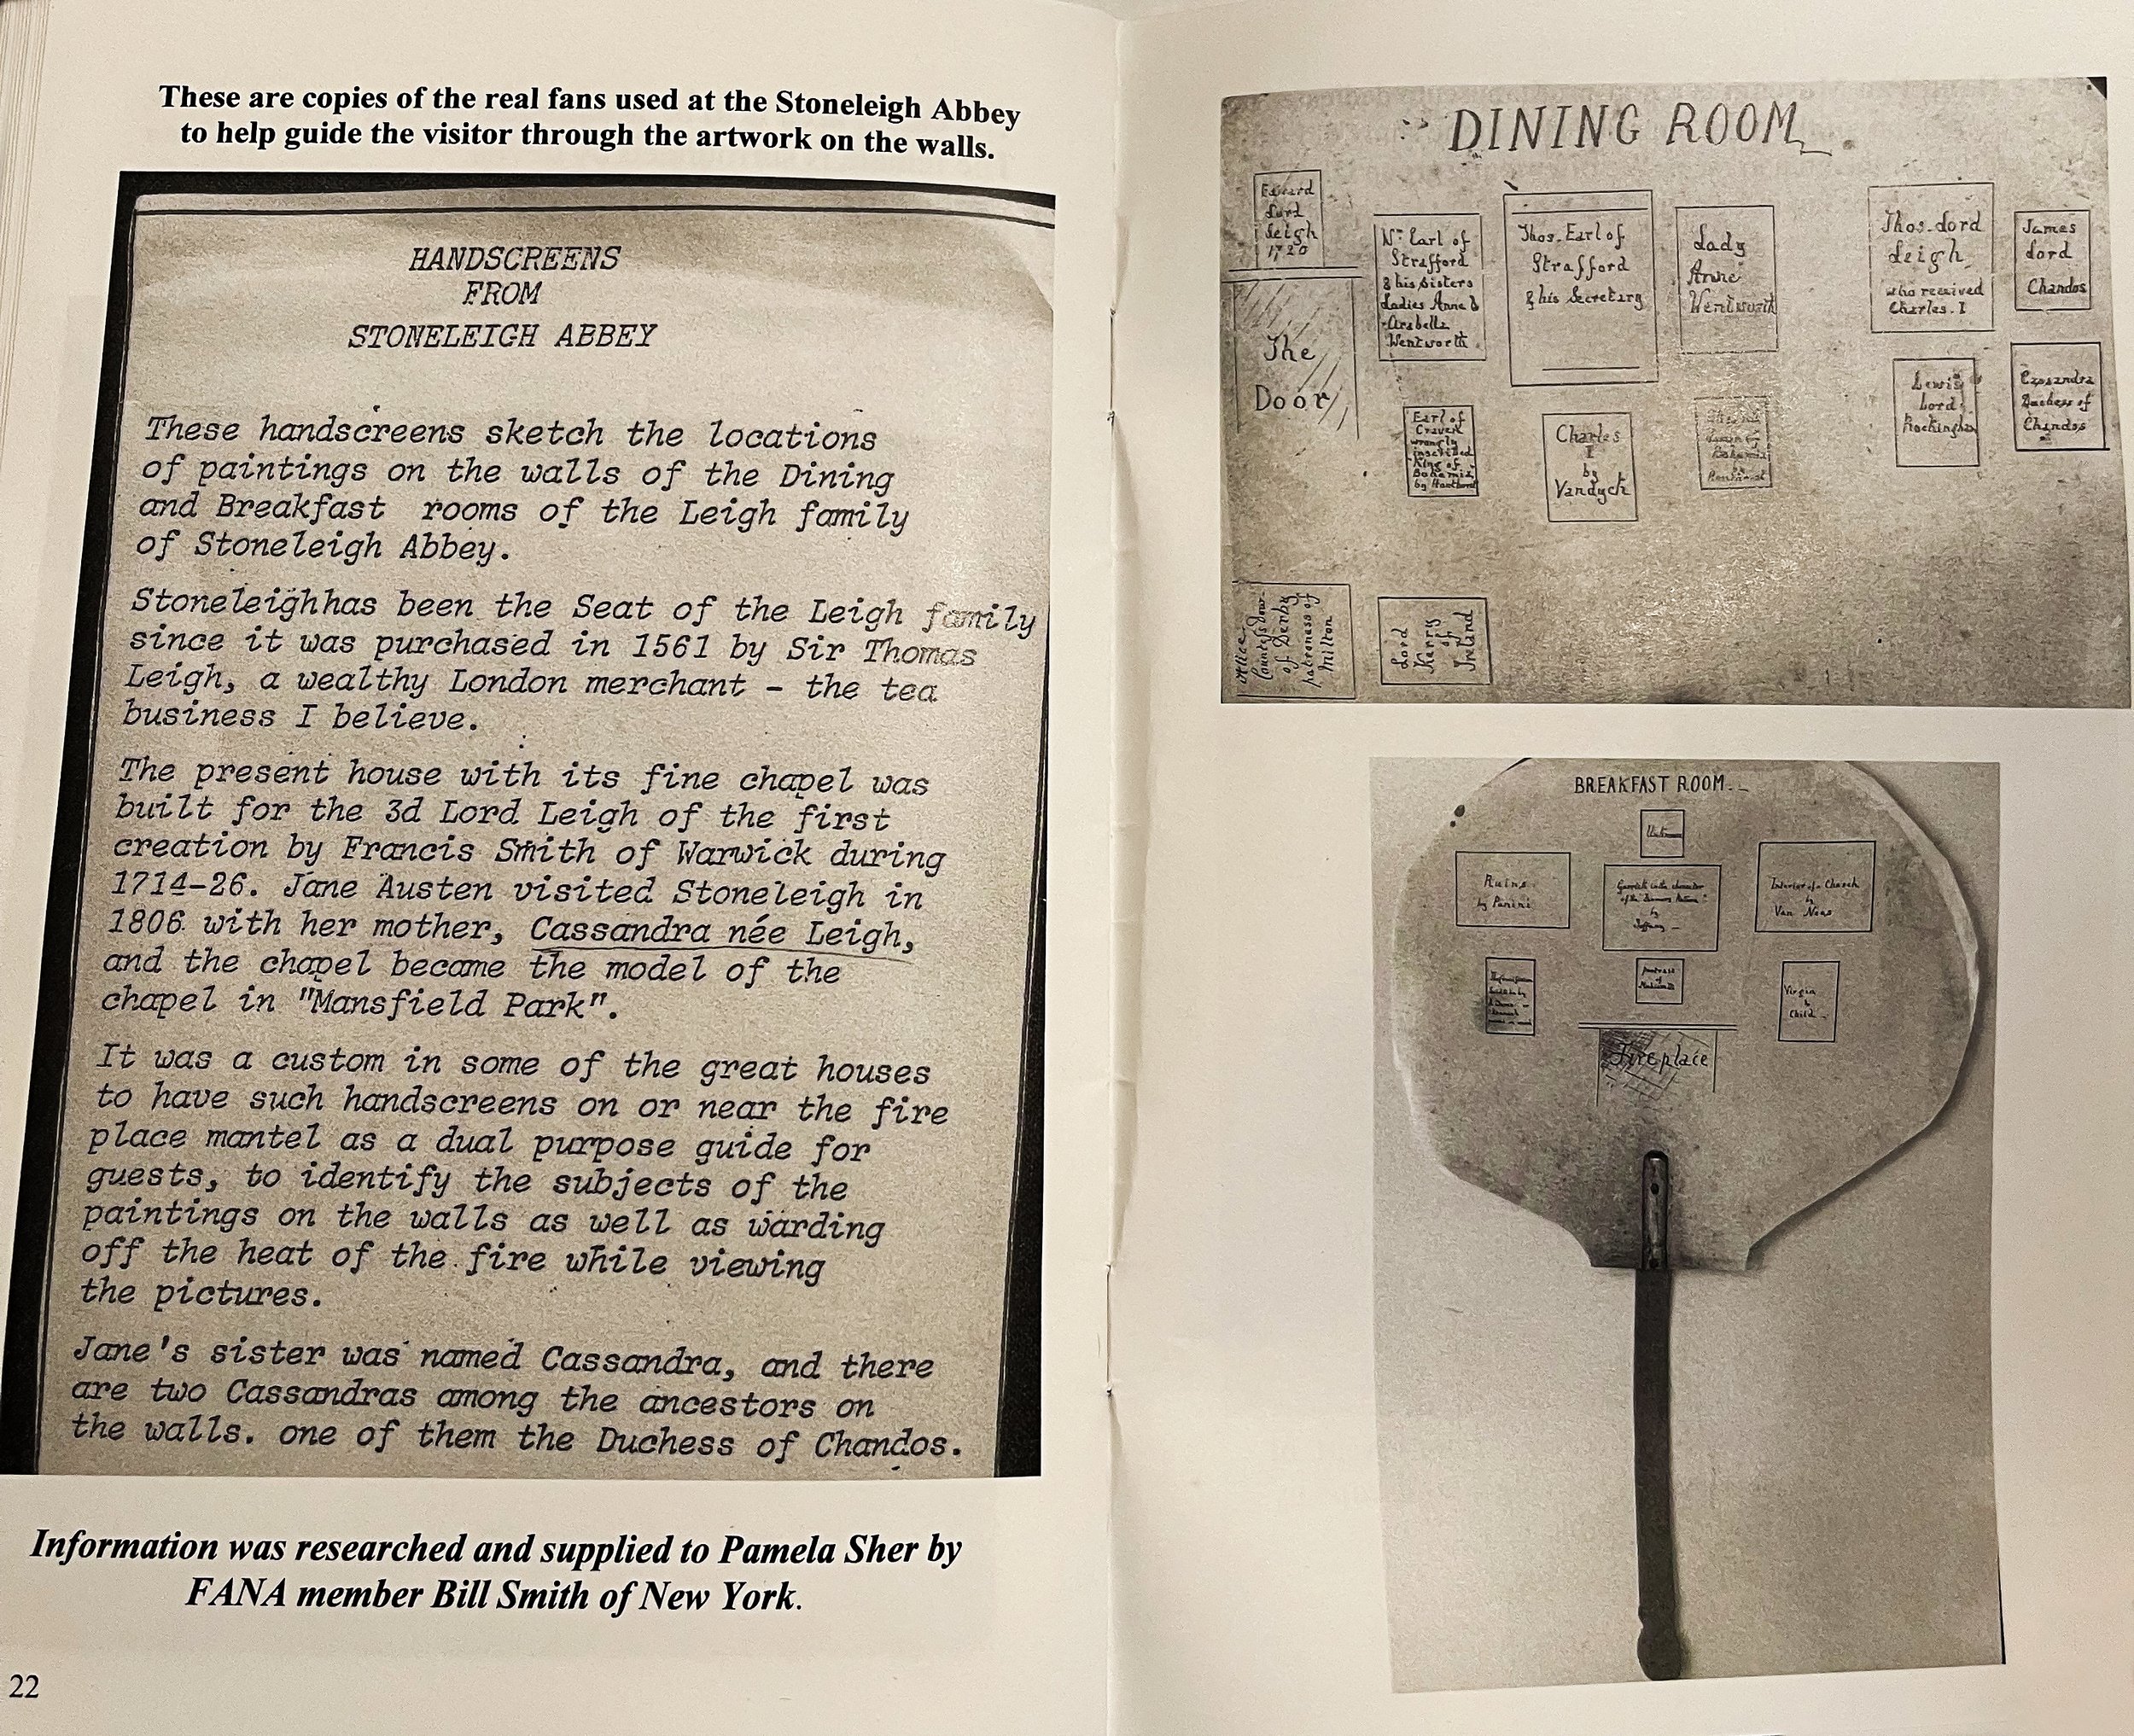 These are copies of the real fans used at the Stoneleigh Abbey
to help guide the visitor through the artwork on the walls.
HANDSCREENS
FROM
STONELEIGH ABBEY
These handscreens sketch the locations
of paintings on the walls of the Dining
and Breakfast rooms of the Leigh family
of Stoneleigh Abbey.
Stoneleighhas been the Seat of the Leigh family
since it was purchased in 1561 by Sir Thomas
Leigh, a wealthy London merchant - the tea
business I believe.
The present house with its fine chapel was
built for the 3d Lord Leigh of the first
creation by Francis Smith of Warwick during
1714-26. Jane Austen visited Stoneleigh in
1806 with her mother, Cassandra née Leigh,
and the chapel became the model of the
chapel in "Mansfield Park".
It was a custom in some of the great houses
to have such handscreens on or near the fire
place mantel as a dual purpose guide for
guests, to identify the subjects of the
paintings on the walls as well as warding
off the heat of the fire while viewing
the pictures.
Jane's sister was named Cassandra, and there
are two Cassandras among the ancestors on
the walls. one of them the Duchess of Chandos.
Information was researched and supplied to Pamela Sher by
FANA member Bill Smith of New York.
22
DINING ROOM
Edward
Lord
Leigh
1720
The
Door
Wm Earl of
Strafford
& his Sisters
Ladies Anne &
Arabella
Wentworth
Thos. Earl of
Strafford
& his Secretary
Lady
Anne
Wentworth
Thos. Lord
Leigh
who received
Charles. I
James
Lord
Chandos
Earl of
Craven
wrongly
inscribed
King of
Bohemia
by
Charles
I
by
Vandyck
Bohemia
by
Lewis
Lord
Rockingham
Cassandra
Duchess of
Chandos
Alice
Countess Dow.
of Derby
patroness of
Milton
Lord
Kerry
of
Ireland
BREAKFAST ROOM
Ruins
by Panini
Garrick in the character
of the
by
Interior of a Church
by
Van Neas
of
Virgin
&
Child
Fireplace